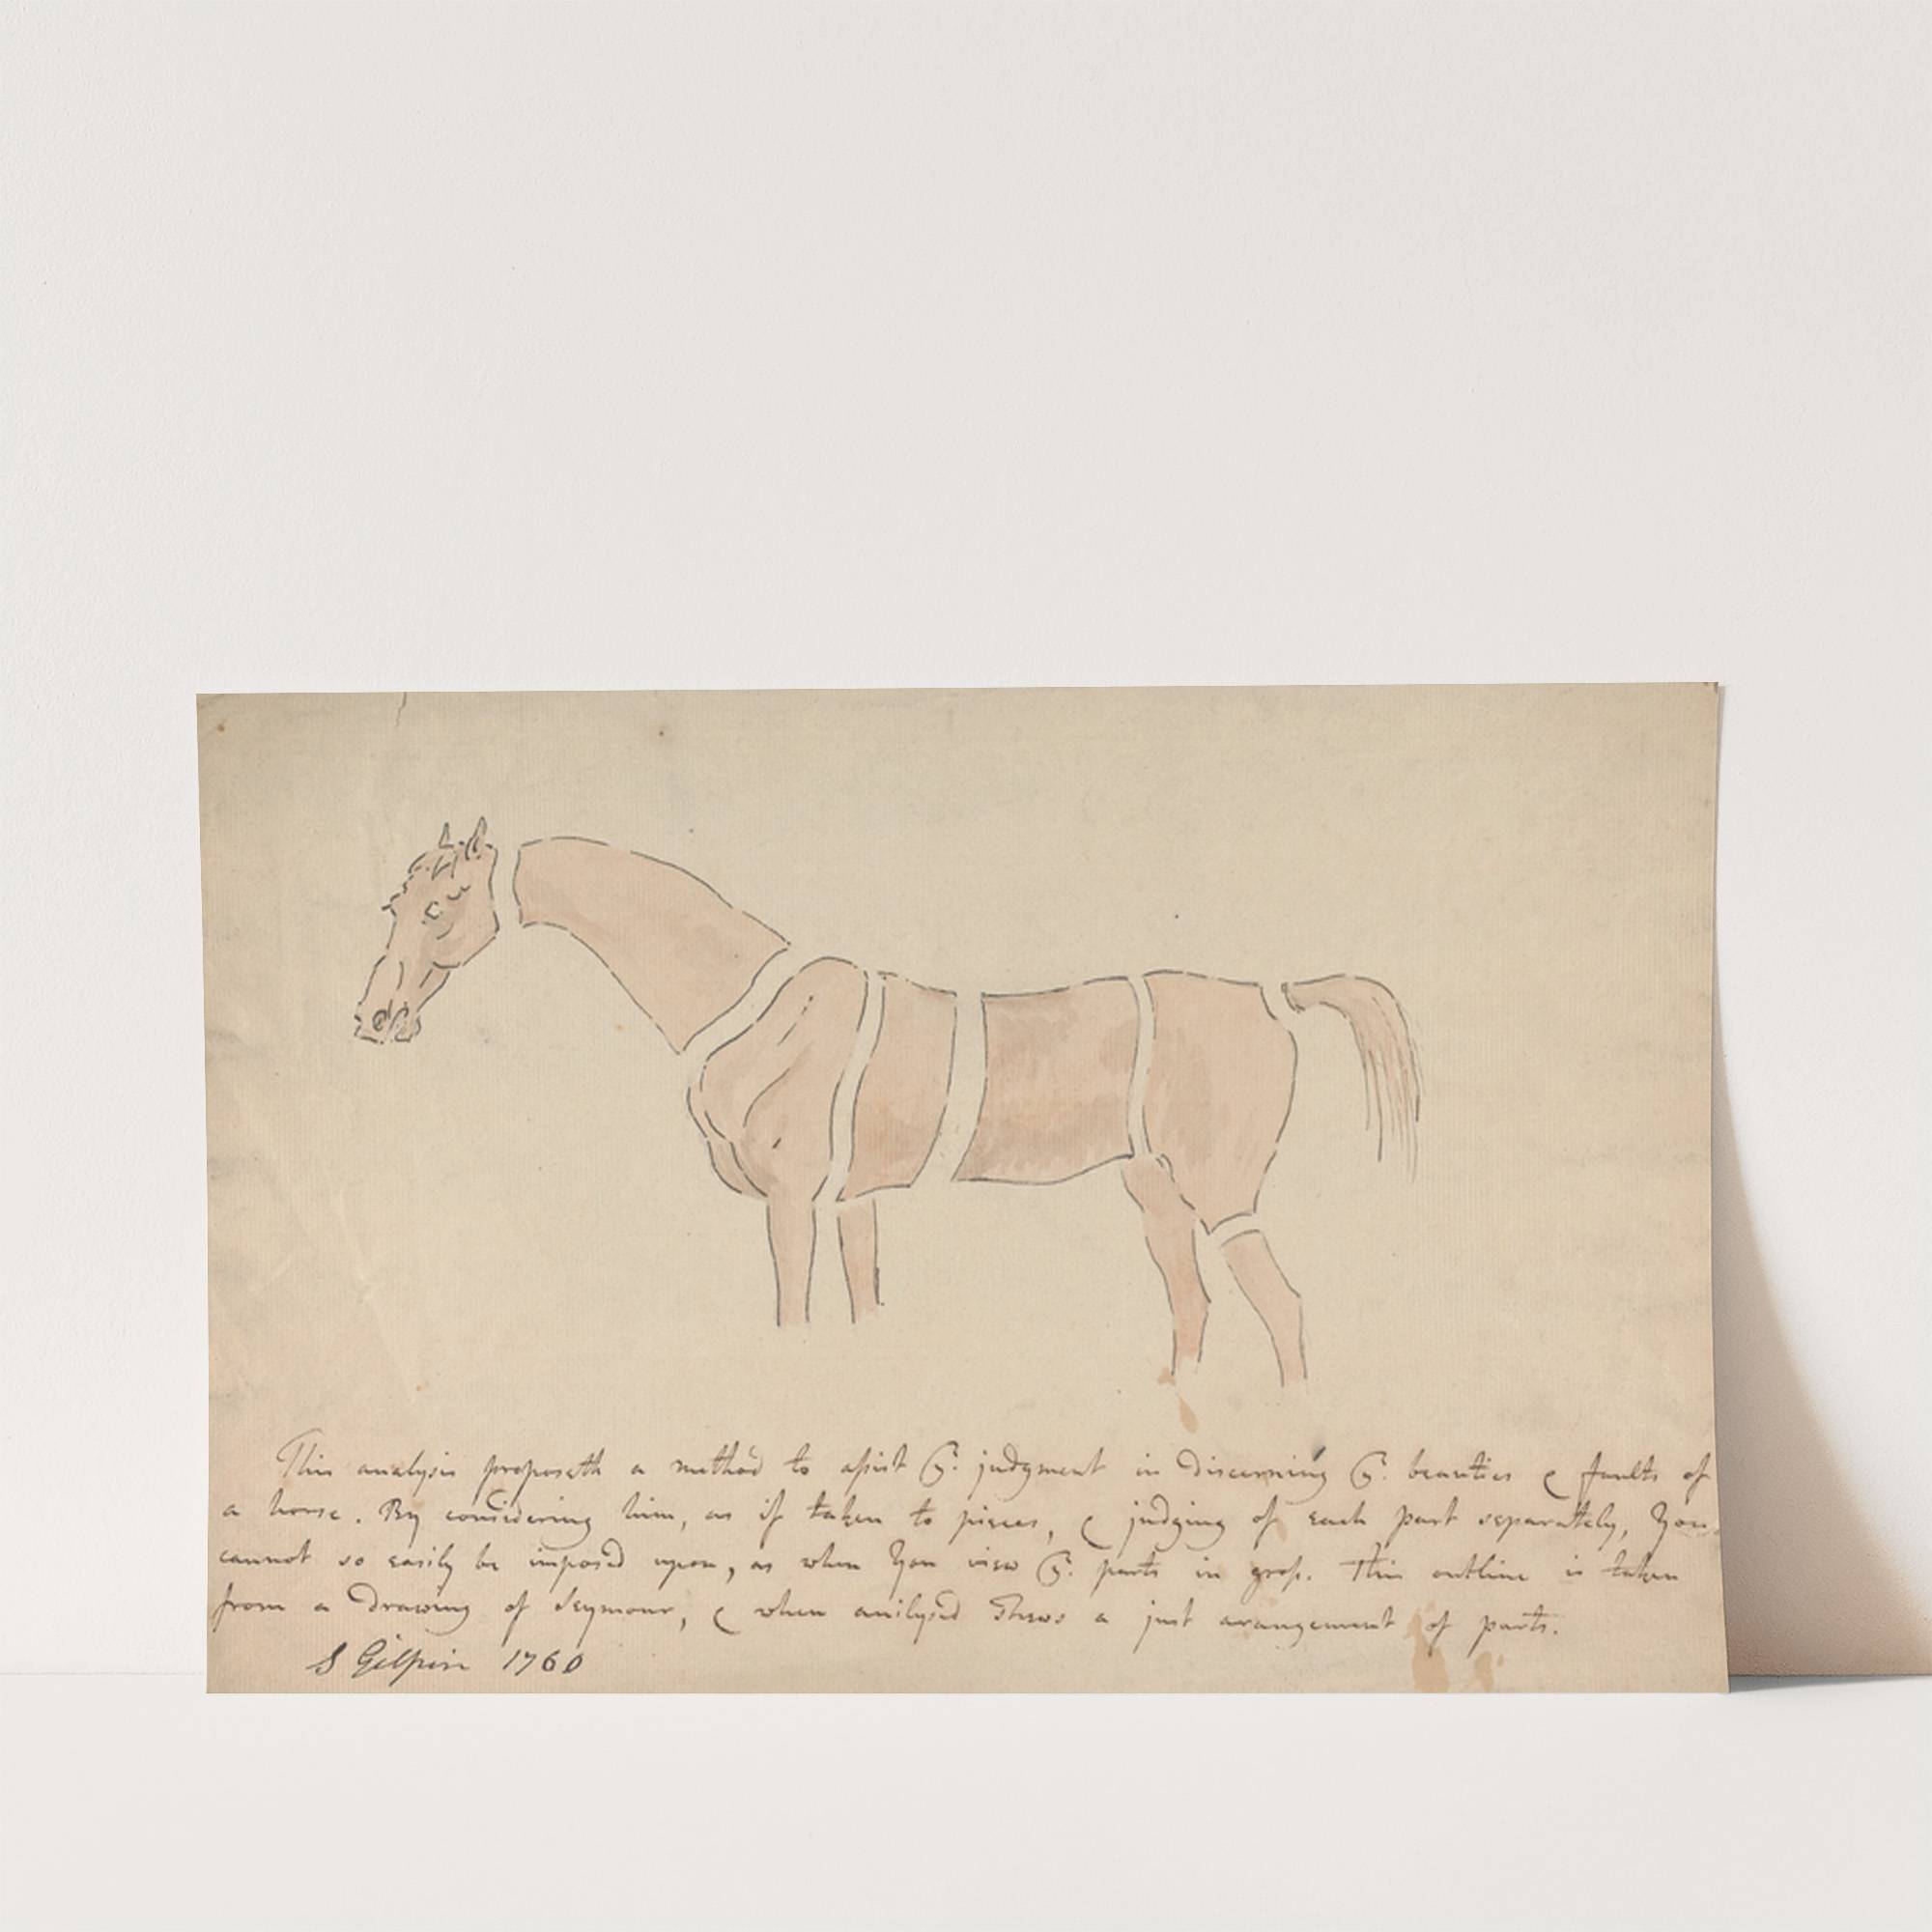 This analysis proposeth a method to assist ye. judgment in discerning ye. beauties & faults of
a horse. By considering him, as if taken to pieces, & judging of each part separately, You
cannot so easily be imposed upon, as when You view ye. parts in gross. This outline is taken
from a Drawing of Seymour, & when anilysed shews a just arangement of parts.
S Gilpin 1760